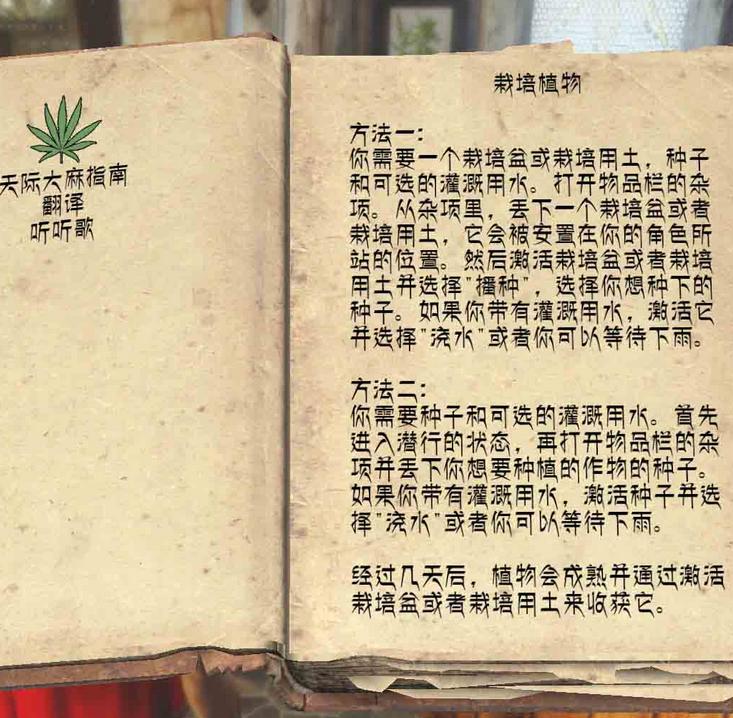 天际大麻指南
翻译
听听歌
栽培植物
方法一:
你需要一个栽培盆或栽培用土，种子
和可选的灌溉用水。打开物品栏的杂
项。从杂项里，丢下一个栽培盆或者
栽培用土，它会被安置在你的角色所
站的位置。然后激活栽培盆或者栽培
用土并选择"播种"，选择你想种下的
种子。如果你带有灌溉用水，激活它
并选择"浇水"或者你可以等待下雨。
方法二:
你需要种子和可选的灌溉用水。首先
进入潜行的状态，再打开物品栏的杂
项并丢下你想要种植的作物的种子。
如果你带有灌溉用水，激活种子并选
择"浇水"或者你可以等待下雨。
经过几天后，植物会成熟并通过激活
栽培盆或者栽培用土来收获它。